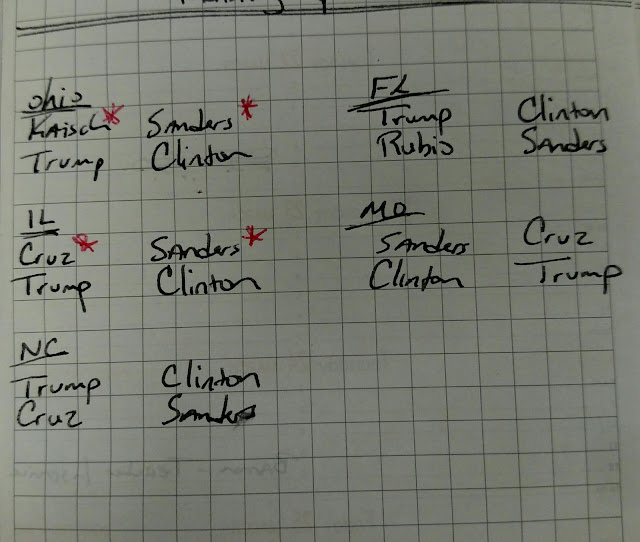 Ohio
Kaisch* Sanders*
Trump Clinton
FL
Trump Clinton
Rubio Sanders
IL
Cruz* Sanders*
Trump Clinton
MO
Sanders Cruz
Clinton Trump
NC
Trump Clinton
Cruz Sanders